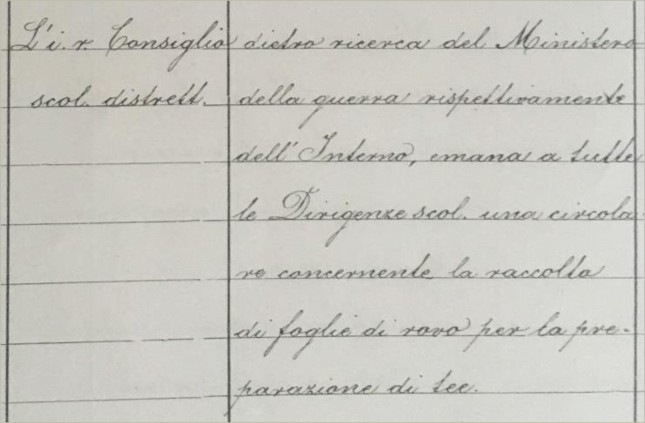 L'i. r. Consiglio dietro ricerca del Ministero
scol. distrett. della guerra rispettivamente
dell' Interno, emana a tutte
le Dirigenze scol. una circola-
re concernente la raccolta
di foglie di rovo per la pre-
parazione di tee.